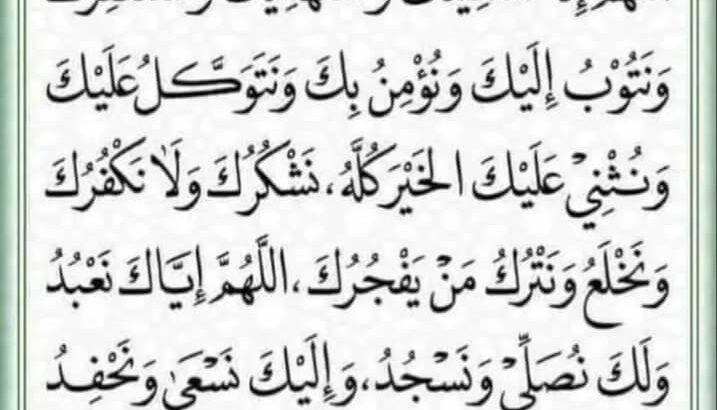 وَنَتُوْبُ إِلَيْكَ وَنُؤْمِنُ بِكَ وَنَتَوَكَّلُ عَلَيْكَ
وَنُثْنِيْ عَلَيْكَ الخَيْرَ كُلَّهُ، نَشْكُرُكَ وَلَا نَكْفُرُكَ
وَنَخْلَعُ وَنَتْرُكُ مَنْ يَفْجُرُكَ، اللَّهُمَّ إِيَّاكَ نَعْبُدُ
وَلَكَ نُصَلِّيْ وَنَسْجُدُ، وَإِلَيْكَ نَسْعَىٰ وَنَحْفِدُ